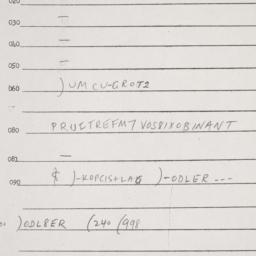 020
030 —
040 —
050 —
060 )UMCU-GROT2
080 PRUITREFM7VOSPIXOBINANT
081 —
090 $ )-KOPCIS+LAG )-ODLER ---
)ODLBER (240 (998